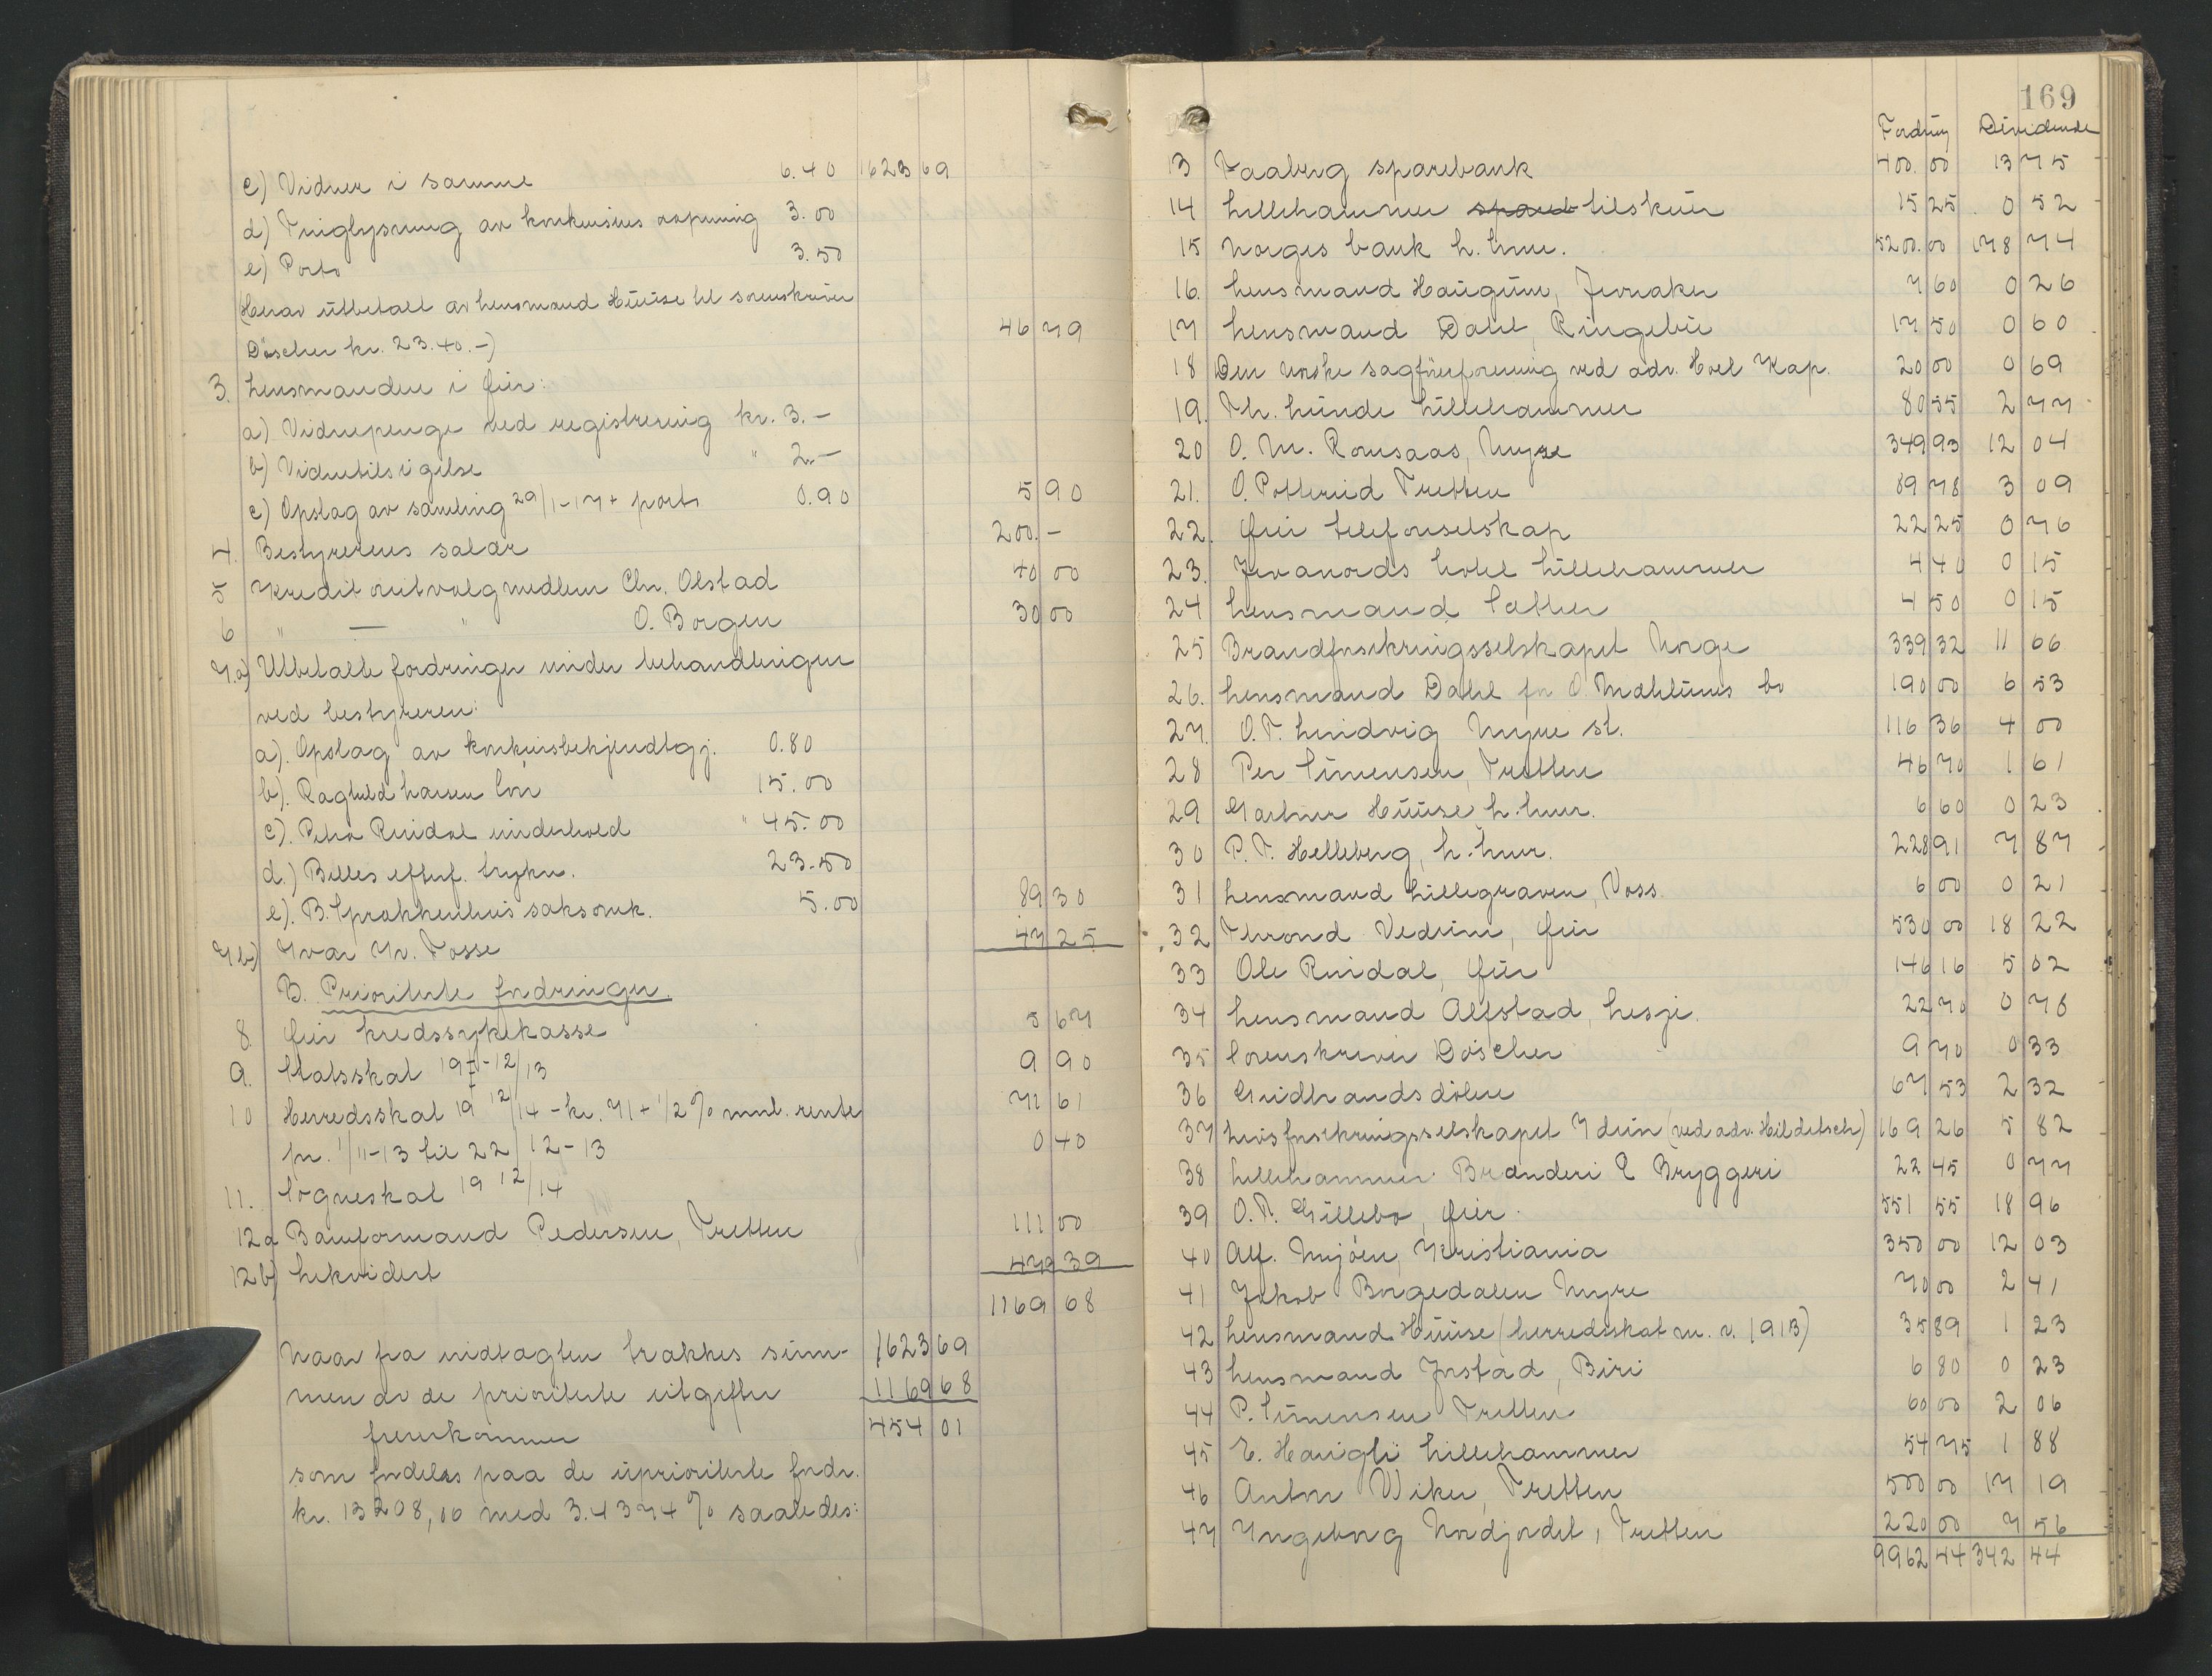 c) Vidner i samme 6.40 1623 69
d) Tinglysning av konkursens aapning 3.00
e) Porto 3.50
(Herav utbetalt av lensmand Huuse til sorenskriver
Döscher kr. 23.40.-) 46 79
3. Lensmanden i Øier:
a) Vidnepenge ved registrering kr. 3.-
b) Vidnetilsigelse " 2.-
c) Opslag av samling 29/1-17 + porto 0.90 5 90
4. Bestyrerens salær 200.-
5 Kreditorutvalgmedlem Chr. Olstad 40 00
6 " — " O. Borgen 30 00
7.a) Utbetalte fordringer under behandlingen
ved bestyreren:
a). Opslag av konkursbekjendtgj. 0.80
b). Raghild Larsen lön 15.00
c). Petra Rindal underhold " 45.00
d.) Billes efterf. trykn. 23.50
e). B. Sprakkenhus saksomk. 5.00 89 30
7b) Ivar Kr. Fosse 47 25
B. Prioriterte fordringer.
8. Øier kredssykekasse 5 67
9. Statsskat 19 12/13 9 90
10 Herredsskat 19 12/14 - kr. 71 + 1/2 % mnl. rente 71 61
fr. 1/11-13 til 22/12-13 0 40
11. Sogneskat 19 12/14
12a Banformand Pedersen, Tretten 111 00
12b) Likvidert 472 39
1169 68
Naar fra indtægten trækkes sum- 1623 69
men av de prioriterte utgifter 1169 68
fremkommer 454 01
som fordeles paa de uprioriterte fordr.
kr. 13208,06 med 3.4374 % saaledes:
169
Fordring Dividende
13 Faaberg sparebank 400.00 13 75
14 Lillehammer spareb tilskuer 15 25 0 52
15 Norges bank L.hmr. 5200.00 178 74
16. Lensmand Haugum, Jevnaker 7 60 0 26
17 Lensmand Dahl Ringebu 17 50 0 60
18 Den norske sagförerforening ved adv. Hoel Kap. 20 00 0 69
19. Th. Lunde Lillehammer 80 55 2 77
20 O. M. Romsaas, Myre 349 93 12 04
21. O. Potterud Tretten 89 78 3 09
22. Øier telefonselskap 22 25 0 76
23. Jevanords hotel Lillehammer 4 40 0 15
24 Lensmand Sæther 4 50 0 15
25 Brandforsikringsselskapet Norge 339 32 11 66
26. Lensmand Dahl for O. Mæhlums bo 190 00 6 53
27. O. T. Lundvig Myre st. 116 36 4 00
28 Per Simensen, Tretten 46 70 1 61
29 Gartner Huuse L.hmr. 6 60 0 23
30 P. T. Helleberg, L.hmr. 228 91 7 87
31 Lensmand Lillegraven, Voss. 6 00 0 21
32 Thrond Vedum, Øier 530 00 18 22
33 Ole Rindal, Øier 146 16 5 02
34 Lensmand Alfstad, Lesje. 22 70 0 78
35 Sorenskriver Döscher 9 70 0 33
36 Gudbrandsdölen 67 53 2 32
37 Livsforsikringsselskapet Idun (ved adv. Hilditsch) 169 26 5 82
38 Lillehammer Brænderi & Bryggeri 22 45 0 77
39 O. P. Gillebo, Øier. 551 55 18 96
40 Alf. Mjöen, Kristiania 350 00 12 03
41 Jakob Borgedalen Myre 70 00 2 41
42 Lensmand Huuse (herredsskat m. v. 1913) 35 89 1 23
43 Lensmand Jostad, Biri 6 80 0 23
44 P. Simensen Tretten 60 00 2 06
45 E. Haugli Lillehammer 54 75 1 88
46 Anton Wiker, Tretten 500 00 17 19
47 Ingeborg Nordjordet, Tretten 220 00 7 56
9962 44 342 44